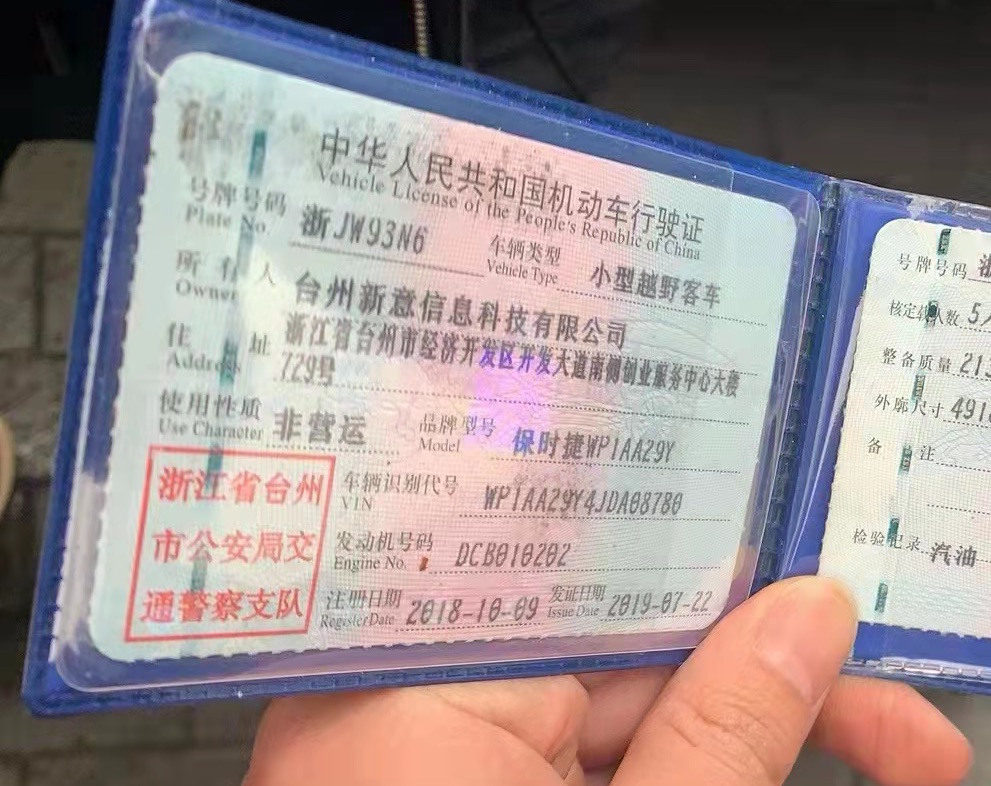 中华人民共和国机动车行驶证
Vehicle License of the People's Republic of China
号牌号码 浙JW93N6 车辆类型 小型越野客车
Plate No. Vehicle Type
所有人 台州新意信息科技有限公司
Owner
住址 浙江省台州市经济开发区开发大道南侧创业服务中心大楼
Address 729号
使用性质 非营运 品牌型号 保时捷WP1AA29Y
Use Character Model
浙江省台州
市公安局交
通警察支队
车辆识别代号 WP1AA29Y4JDA08780
VIN
发动机号码 DCB010202
Engine No.
注册日期 2018-10-09 发证日期 2019-07-22
Register Date Issue Date
号牌号码
核定载人数 5人
整备质量 213
外廓尺寸 491
备注
检验记录 汽油